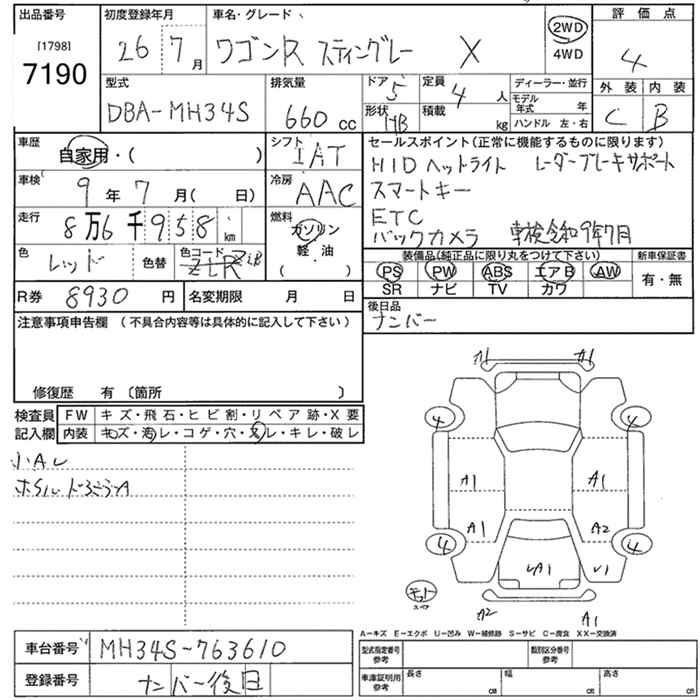 出品番号
[1798]
7190
初度登録年月
26 7月
車名・グレード
ワゴンR スティングレー X
2WD
4WD
評価点
4
外装 内装
C B
型式
DBA-MH34S
排気量
660 cc
ドア 5
形状 HB
定員 4 人
積載 kg
ディーラー・並行
モデル年式 年
ハンドル 左・右
車歴
自家用・( )
シフト
IAT
車検
9年7月( 日)
冷房
AAC
走行
8万6千958 km
燃料
ガソリン
軽・油
( )
色
レッド
色替
色コード
ZLR
R券 8930 円
名変期限 月 日
セールスポイント(正常に機能するものに限ります)
HIDヘットライト レーダーブレーキサポート
スマートキー
ETC
バックカメラ 車検令和9年7月
装備品(純正品に限り丸をつけて下さい)
PS PW ABS エアB AW
SR ナビ TV カワ
新車保証書
有・無
後日品
ナンバー
注意事項申告欄 (不具合内容等は具体的に記入して下さい)
修復歴 有 〔箇所 〕
検査員記入欄
FW キズ・飛石・ヒビ割・リペア跡・X要
内装 キズ・汚レ・コゲ・穴・スレ・キレ・破レ
小AU
A1 A1
4 4
A1 A1
A1 A2
4 4
UA1 U1
A2 A1
A-キズ E-エクボ U-凹み W-補修跡 S-サビ C-腐食 XX-交換済
車台番号 MH34S-763610
登録番号 ナンバー後日
型式指定番号 参考
類別区分番号 参考
車庫証明用 参考
長さ cm
幅 cm
高さ cm